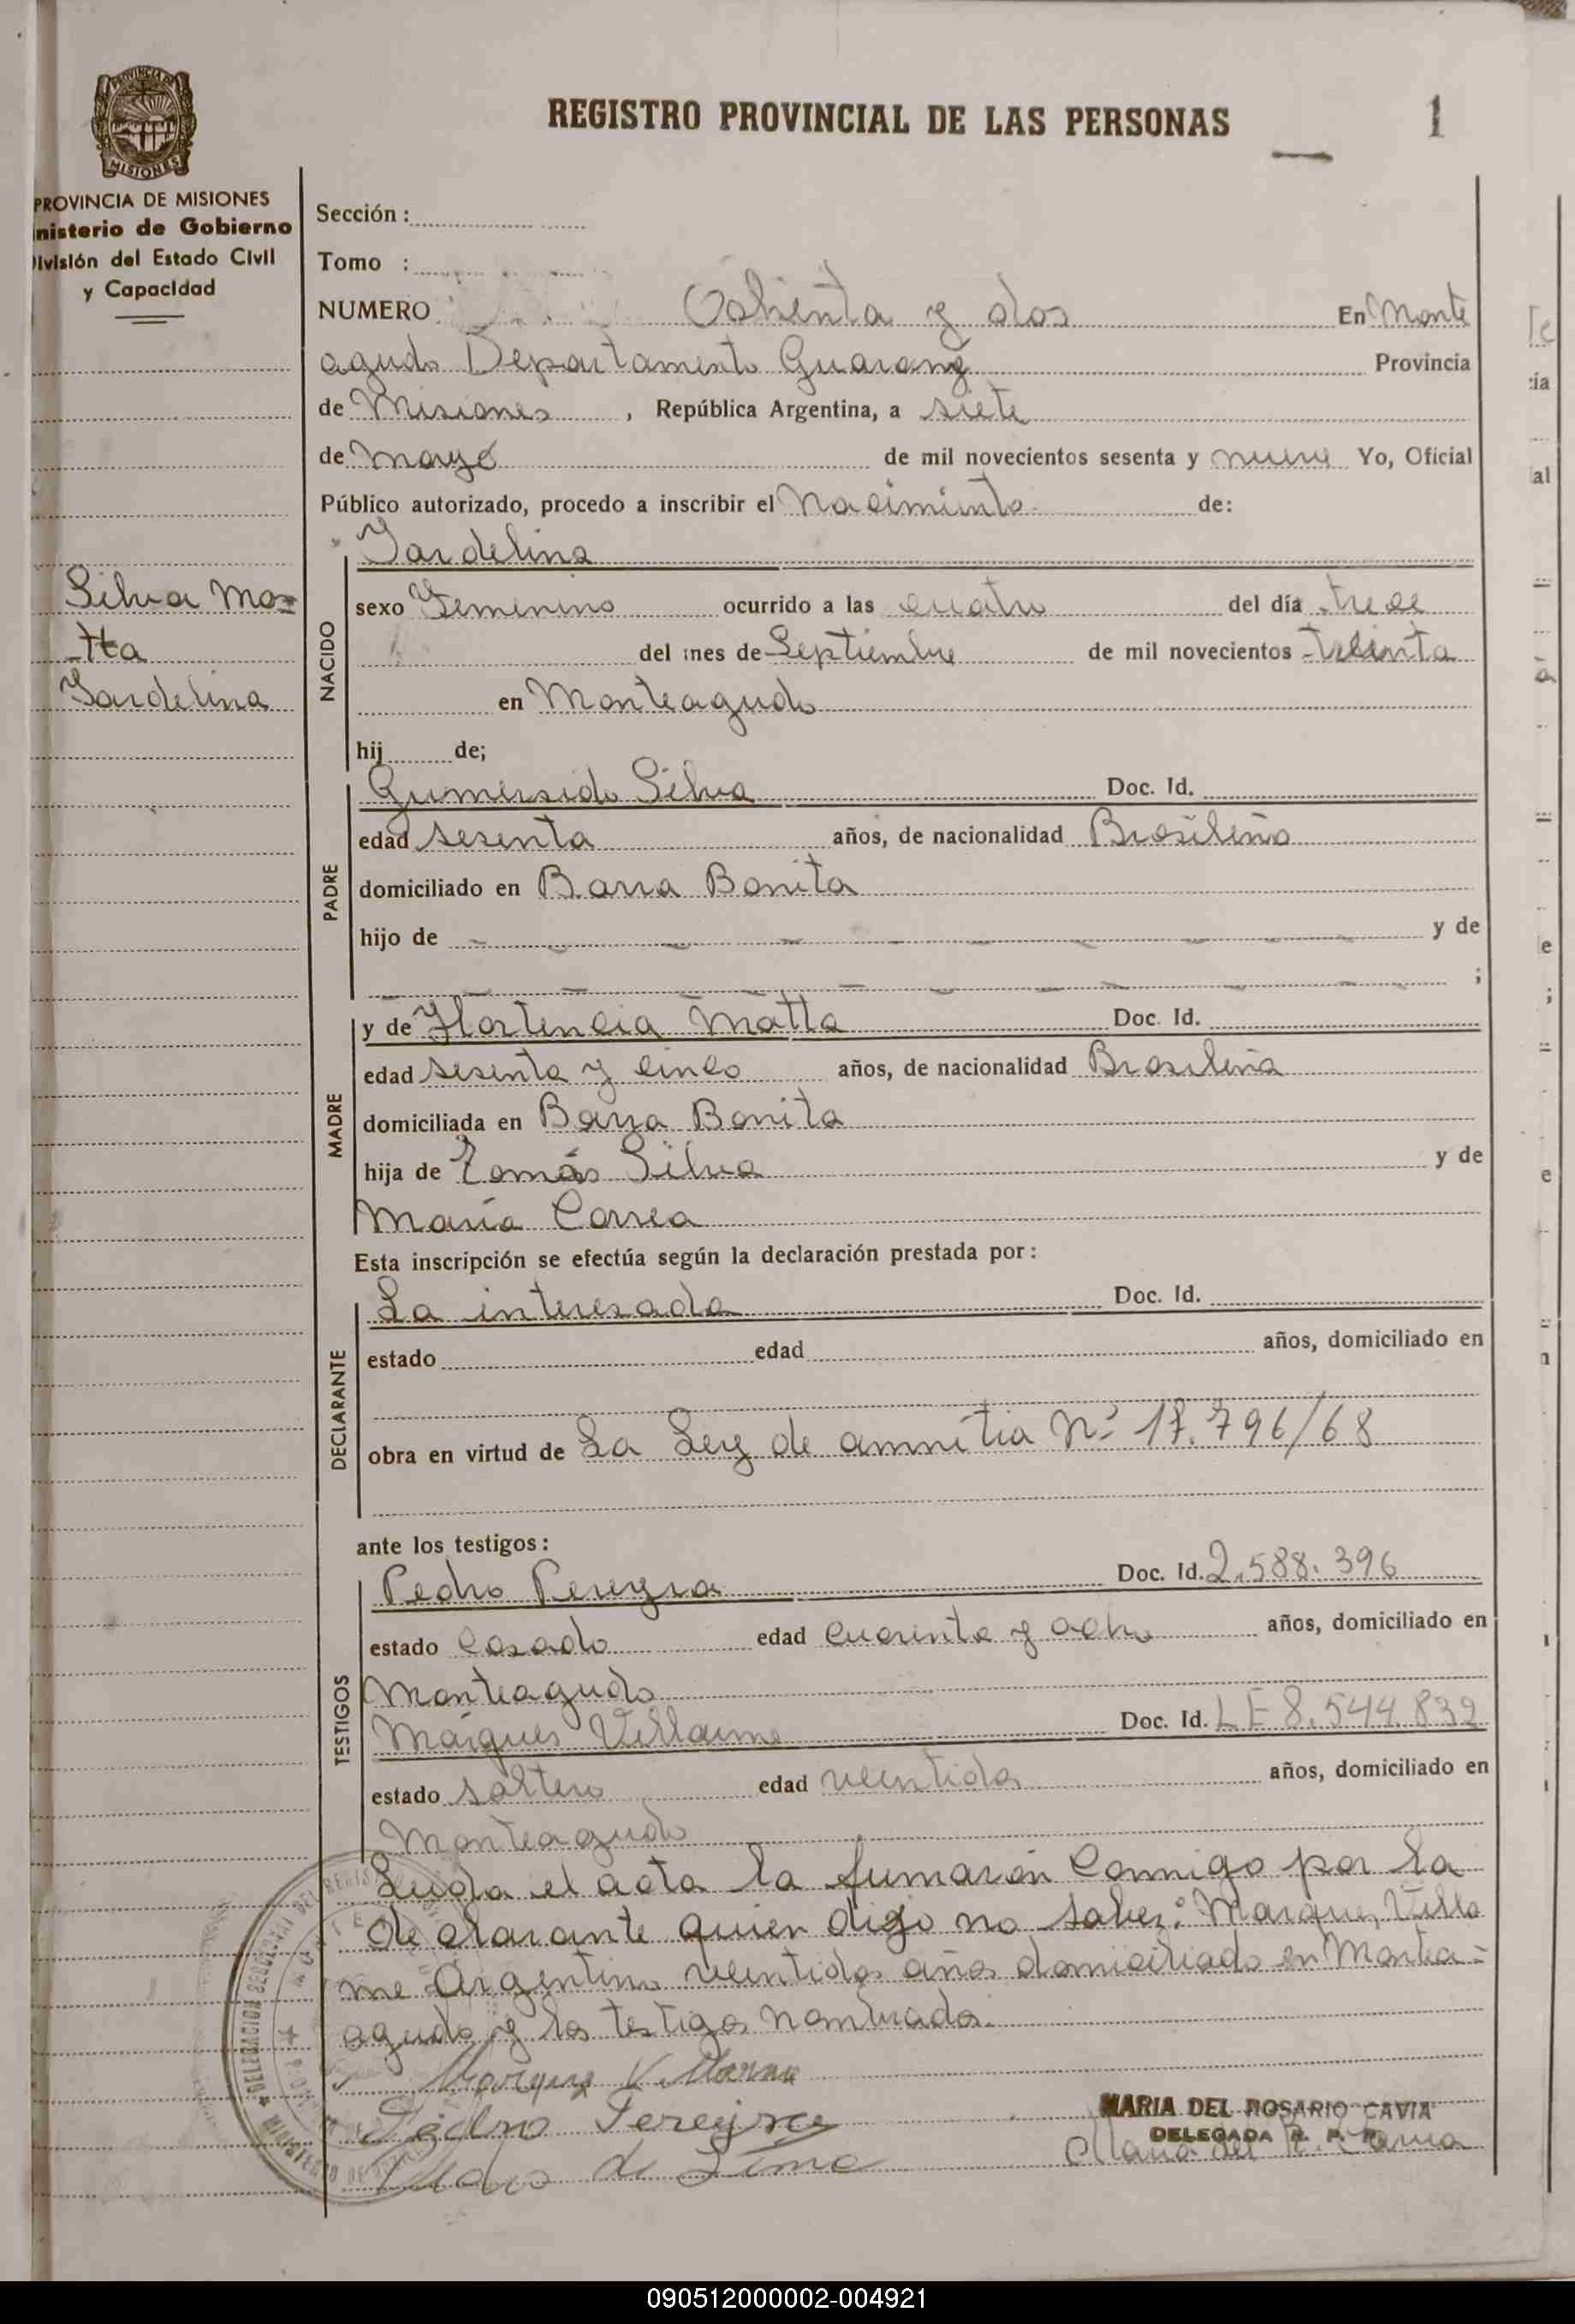 PROVINCIA DE
MISIONES
REGISTRO PROVINCIAL DE LAS PERSONAS
1
PROVINCIA DE MISIONES
nisterio de Gobierno
ivisión del Estado Civil
y Capacidad
Sección :
Tomo :
NUMERO Ochenta y dos En Monte
agudo Departamento Guarany Provincia
de Misiones , República Argentina, a siete
de mayo de mil novecientos sesenta y nueve Yo, Oficial
Público autorizado, procedo a inscribir el Nacimiento de:
Jardelina
Silva Ma=
tta
Jardelina
NACIDO
sexo Femenino ocurrido a las cuatro del día trece
del mes de Septiembre de mil novecientos treinta
en Monteagudo
hij de;
PADRE
Gumersido Silva Doc. Id.
edad sesenta años, de nacionalidad Brasileño
domiciliado en Barra Bonita
hijo de y de
;
MADRE
y de Hortencia Matta Doc. Id.
edad sesenta y cinco años, de nacionalidad Brasileña
domiciliada en Barra Bonita
hija de Tomás Silva y de
María Correa
Esta inscripción se efectúa según la declaración prestada por :
DECLARANTE
La interesada Doc. Id.
estado edad años, domiciliado en
obra en virtud de La Ley de amnitia Nº 17.796/68
ante los testigos :
TESTIGOS
Pedro Pereyra Doc. Id. 2.588.396
estado Casado edad cuarenta y ocho años, domiciliado en
Monteagudo
Márques Villarme Doc. Id. LE 8.544.832
estado soltero edad veintidos años, domiciliado en
Monteagudo
Leida el acta la fumarón conmigo por la
declarante quien digo no saber: Marques Villa
me Argentino veintidos años domiciliado en Montea=
agudo y los testigos nombrados.
Marques Villarme
Pedro Pereyra
de Lima
MARIA DEL ROSARIO CAVIA
DELEGADA R. P. P.
Maria del R. Cavia
090512000002-004921